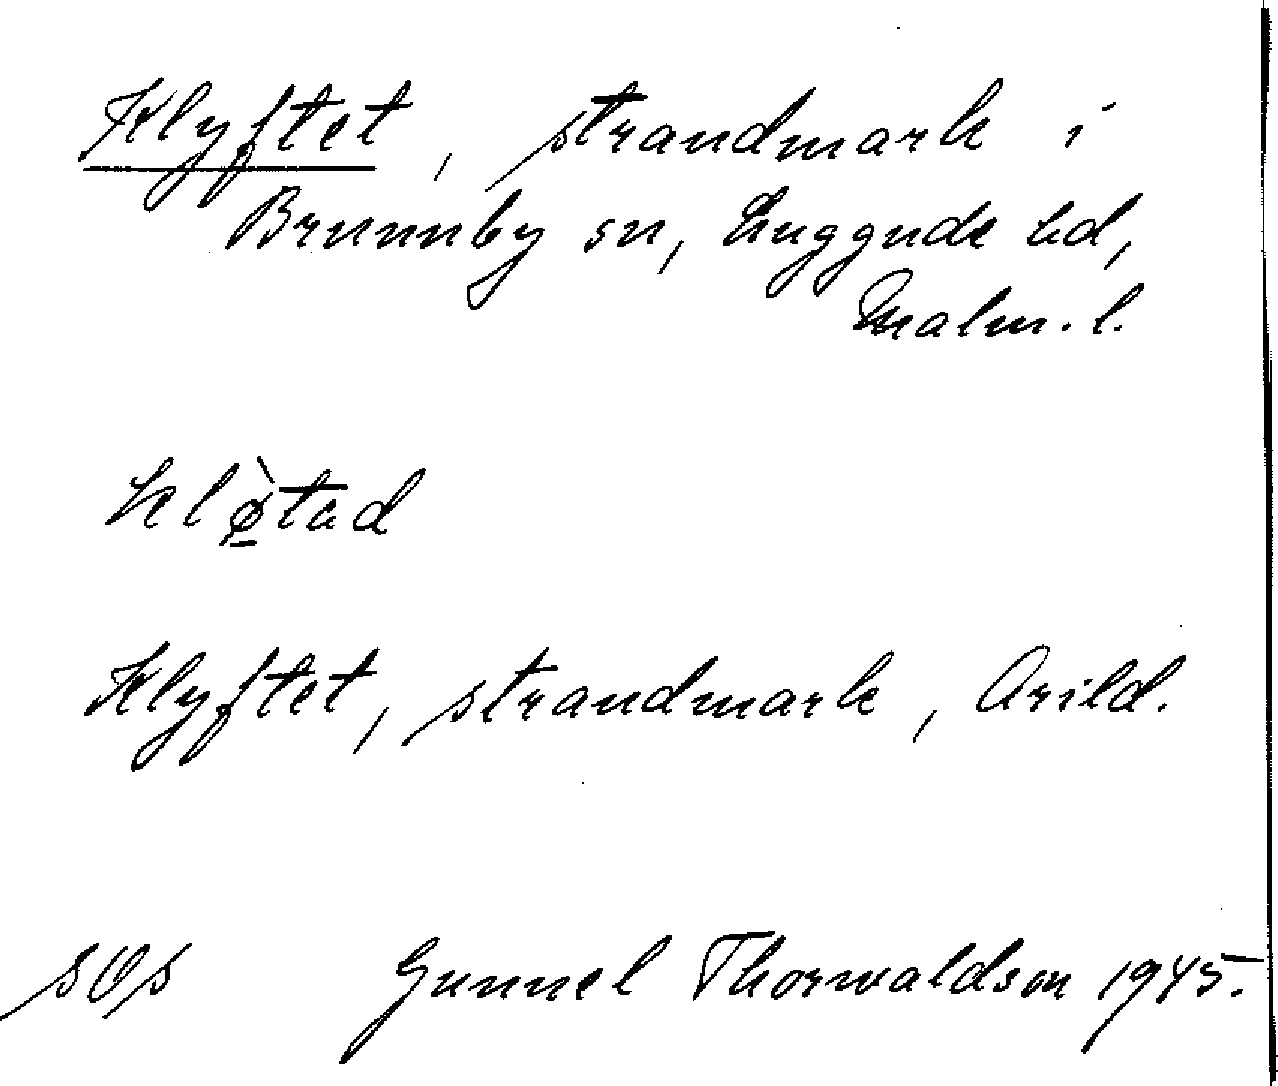 Klyftet, strandmark i
Brunnby sn, Luggude hd,
Malm. l.
klø̠̀tad
Klyftet, strandmark, Arild.
sOs Gunnel Thorwaldson 1945.